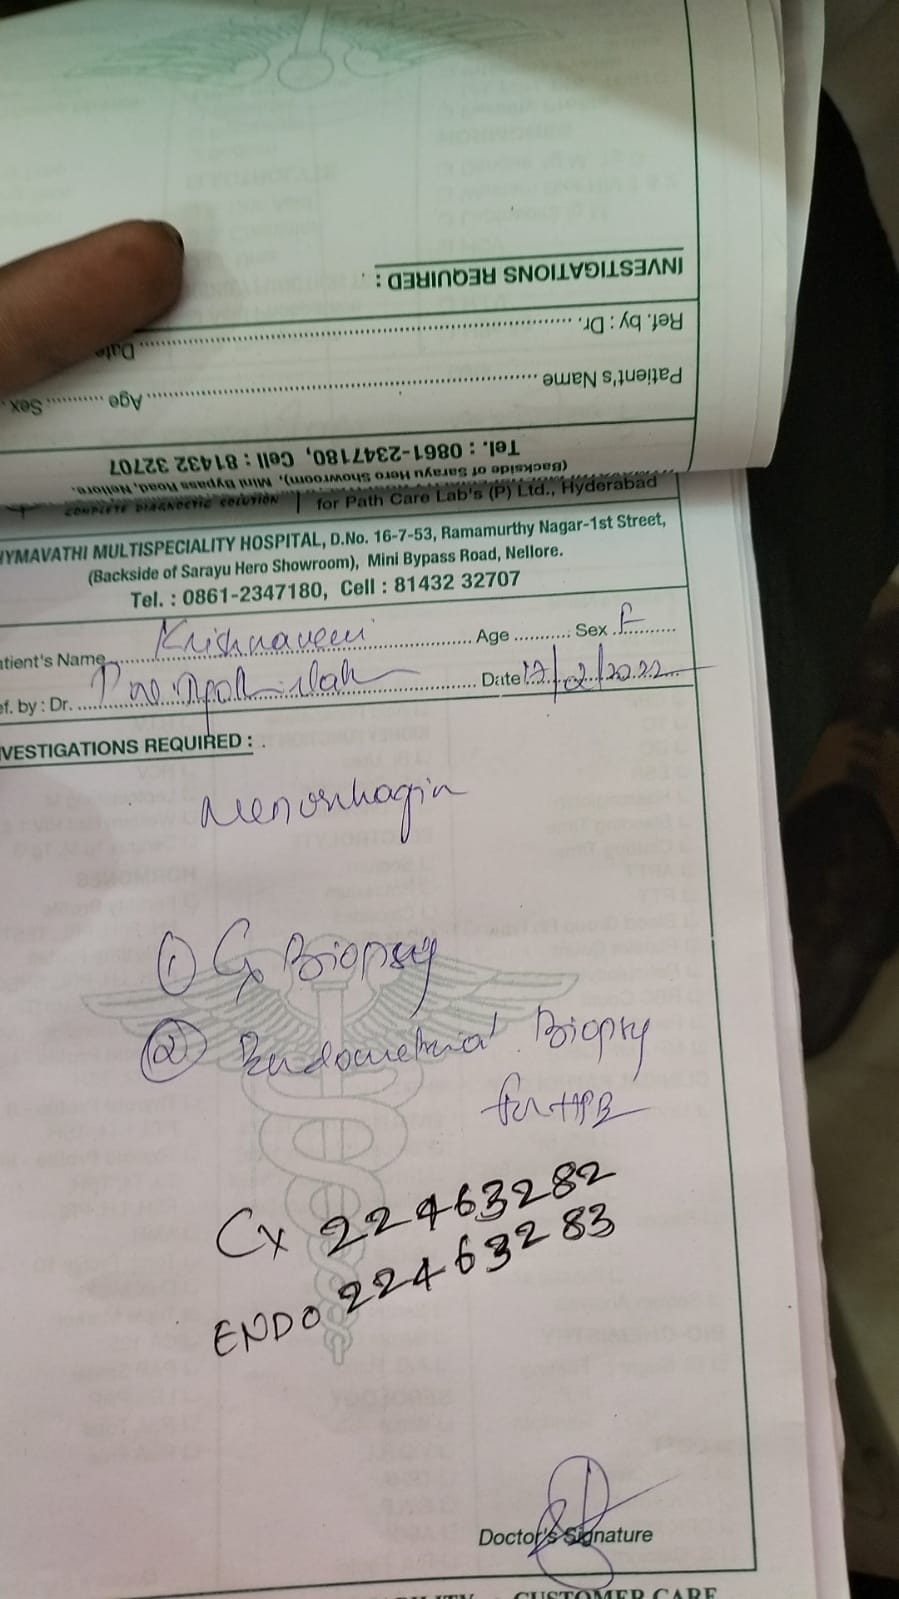 INVESTIGATIONS REQUIRED :
Ref. by : Dr. ........ Date
Patient's Name ........ Age ........ Sex
Tel. : 0861-2347180, Cell : 81432 32707
(Backside of Sarayu Hero Showroom), Mini Bypass Road, Nellore.
COMPLETE DIAGNOSTIC SOLUTION for Path Care Lab's (P) Ltd., Hyderabad
YMAVATHI MULTISPECIALITY HOSPITAL, D.No. 16-7-53, Ramamurthy Nagar-1st Street,
(Backside of Sarayu Hero Showroom), Mini Bypass Road, Nellore.
Tel. : 0861-2347180, Cell : 81432 32707
tient's Name Krishnaveni Age ........ Sex F
ef. by : Dr. Date 17/2/2022
VESTIGATIONS REQUIRED :
Menorrhagia
① Cx Biopsy
② Endometrial Biopsy
for HPE
Cx 22463282
ENDO 22463283
Doctor's Signature
CUSTOMER CARE